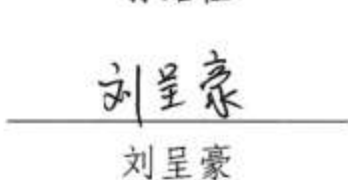 刘呈豪
刘呈豪